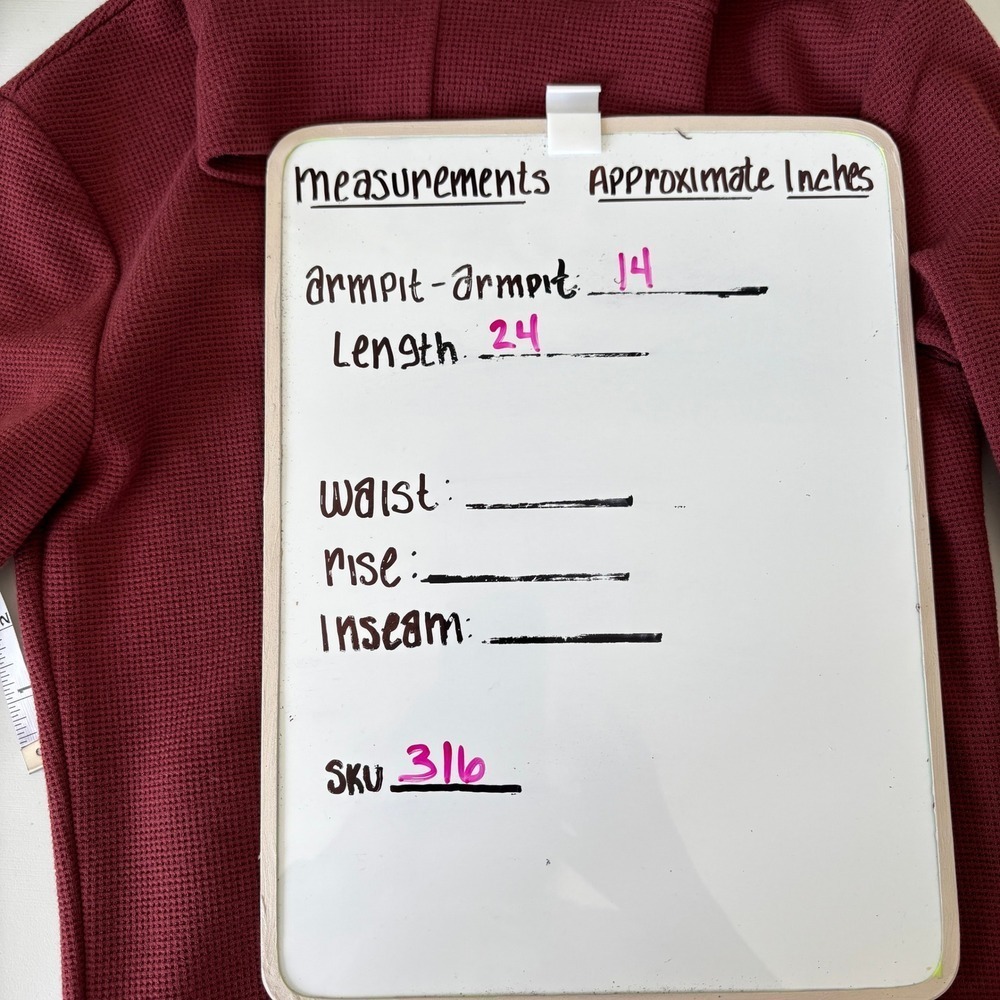 measurements Approximate Inches
armpit-armpit: 14
Length: 24
waist:
rise:
Inseam:
SKU 316
2
1